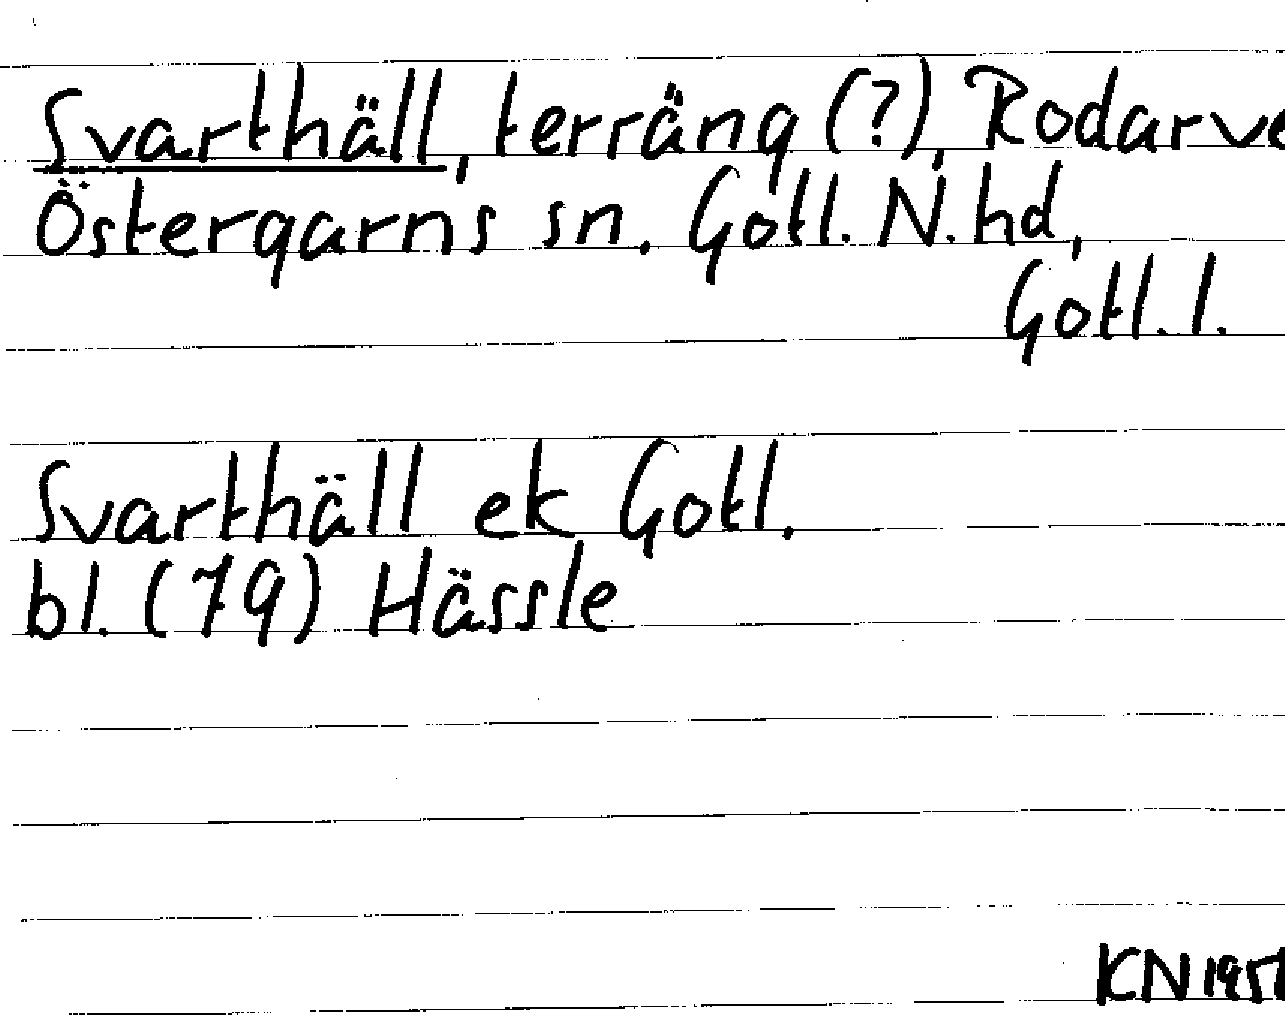 Svarthäll, terräng (?), Rodarve
Östergarns sn. Gotl. N. hd,
Gotl. l.
Svarthäll ek Gotl.
bl. (79) Hässle
KN